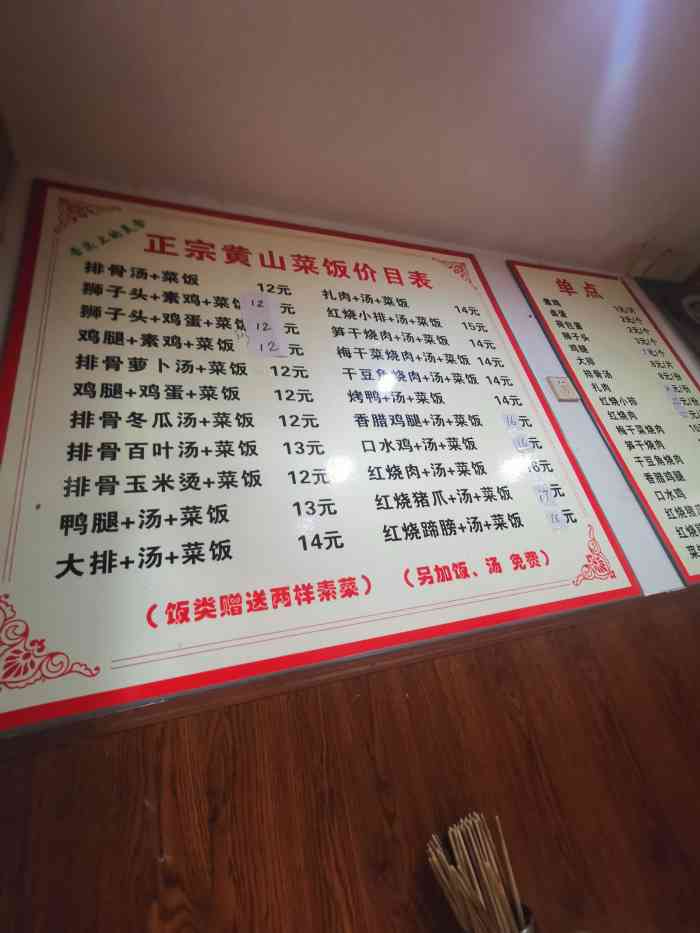 舌尖上的美食
正宗黄山菜饭价目表
排骨汤+菜饭 12元
狮子头+素鸡+菜饭 12 元
狮子头+鸡蛋+菜饭 12 元
鸡腿+素鸡+菜饭 12 元
排骨萝卜汤+菜饭 12元
鸡腿+鸡蛋+菜饭 12元
排骨冬瓜汤+菜饭 12元
排骨百叶汤+菜饭 13元
排骨玉米烫+菜饭 12元
鸭腿+汤+菜饭 13元
大排+汤+菜饭 14元
扎肉+汤+菜饭 14元
红烧小排+汤+菜饭 15元
笋干烧肉+汤+菜饭 14元
梅干菜烧肉+汤+菜饭 14元
干豆角烧肉+汤+菜饭 14元
烤鸭+汤+菜饭 14元
香腊鸡腿+汤+菜饭 16元
口水鸡+汤+菜饭 16元
红烧肉+汤+菜饭 16元
红烧猪爪+汤+菜饭 17元
红烧蹄膀+汤+菜饭 元
（饭类赠送两样素菜）
（另加饭、汤 免费）
单点
素鸡
卤蛋 2元/个
荷包蛋 2元/个
狮子头 3元/个
鸡腿 元/个
大排 8元/片
排骨汤 8元/份
扎肉
红烧小排
红烧肉
梅干菜烧肉
笋干烧肉
干豆角烧肉
香腊鸡腿
口水鸡
红烧猪爪
红烧